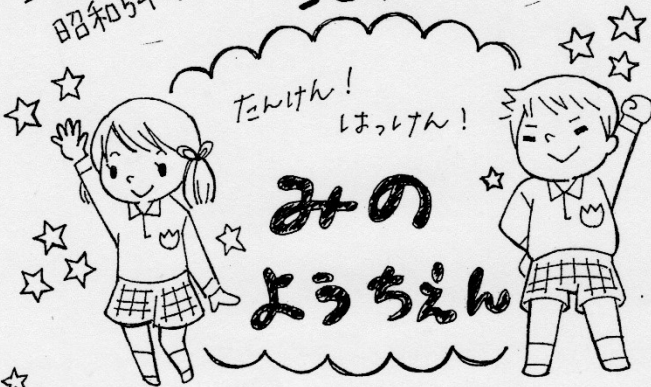 昭和5
たんけん！
はっけん！
みの
ようちえん